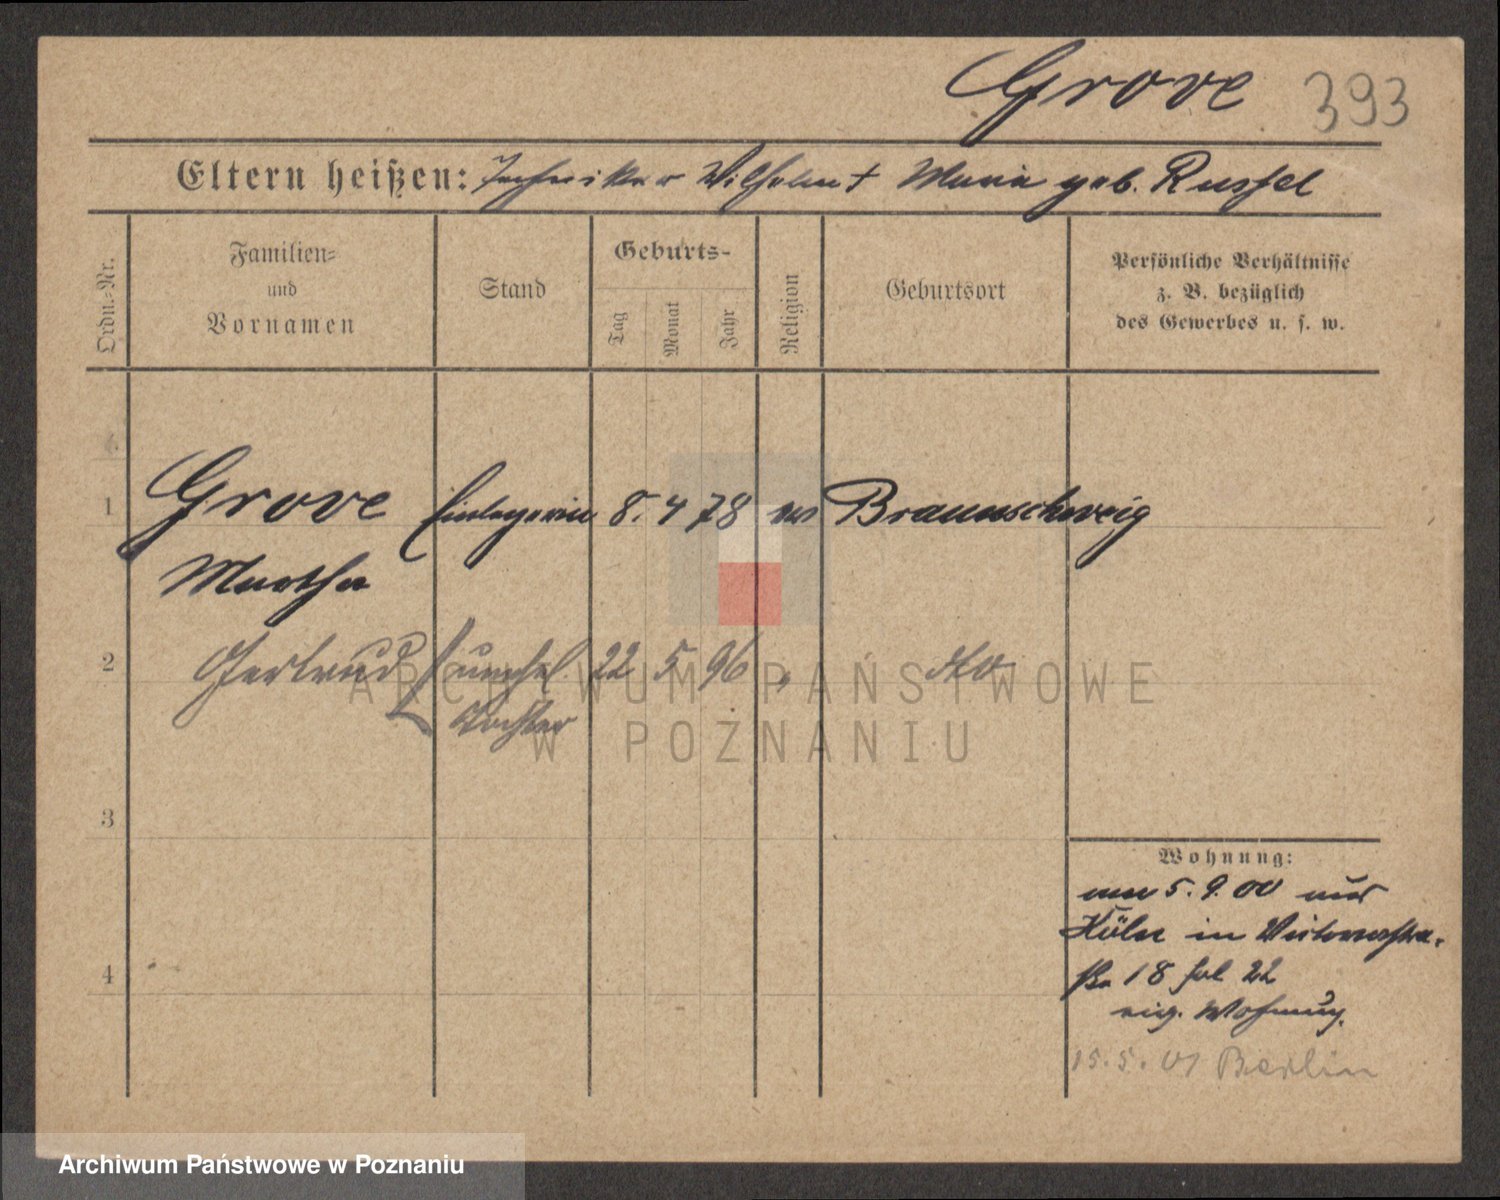 Grove 393
Eltern heißen: Techniker Wilhelm † Maria geb. Russel
Ordn.-Nr.
Familien-
und
Vornamen
Stand
Geburts-
Tag
Monat
Jahr
Religion
Geburtsort
Persönliche Verhältnisse
z. B. bezüglich
des Gewerbes u. s. w.
1 Grove 8. 4 78 Braunschweig
Martha
2 Gertrud unehel. 22 5 96 " dto
Tochter
3
4
Wohnung:
5. 9. 00 aus
Köln in Victoriastra-
ße 18 22
eig. Wohnung.
15. 5. 01 Berlin
ARCHIWUM PAŃSTWOWE
W POZNANIU
Archiwum Państwowe w Poznaniu